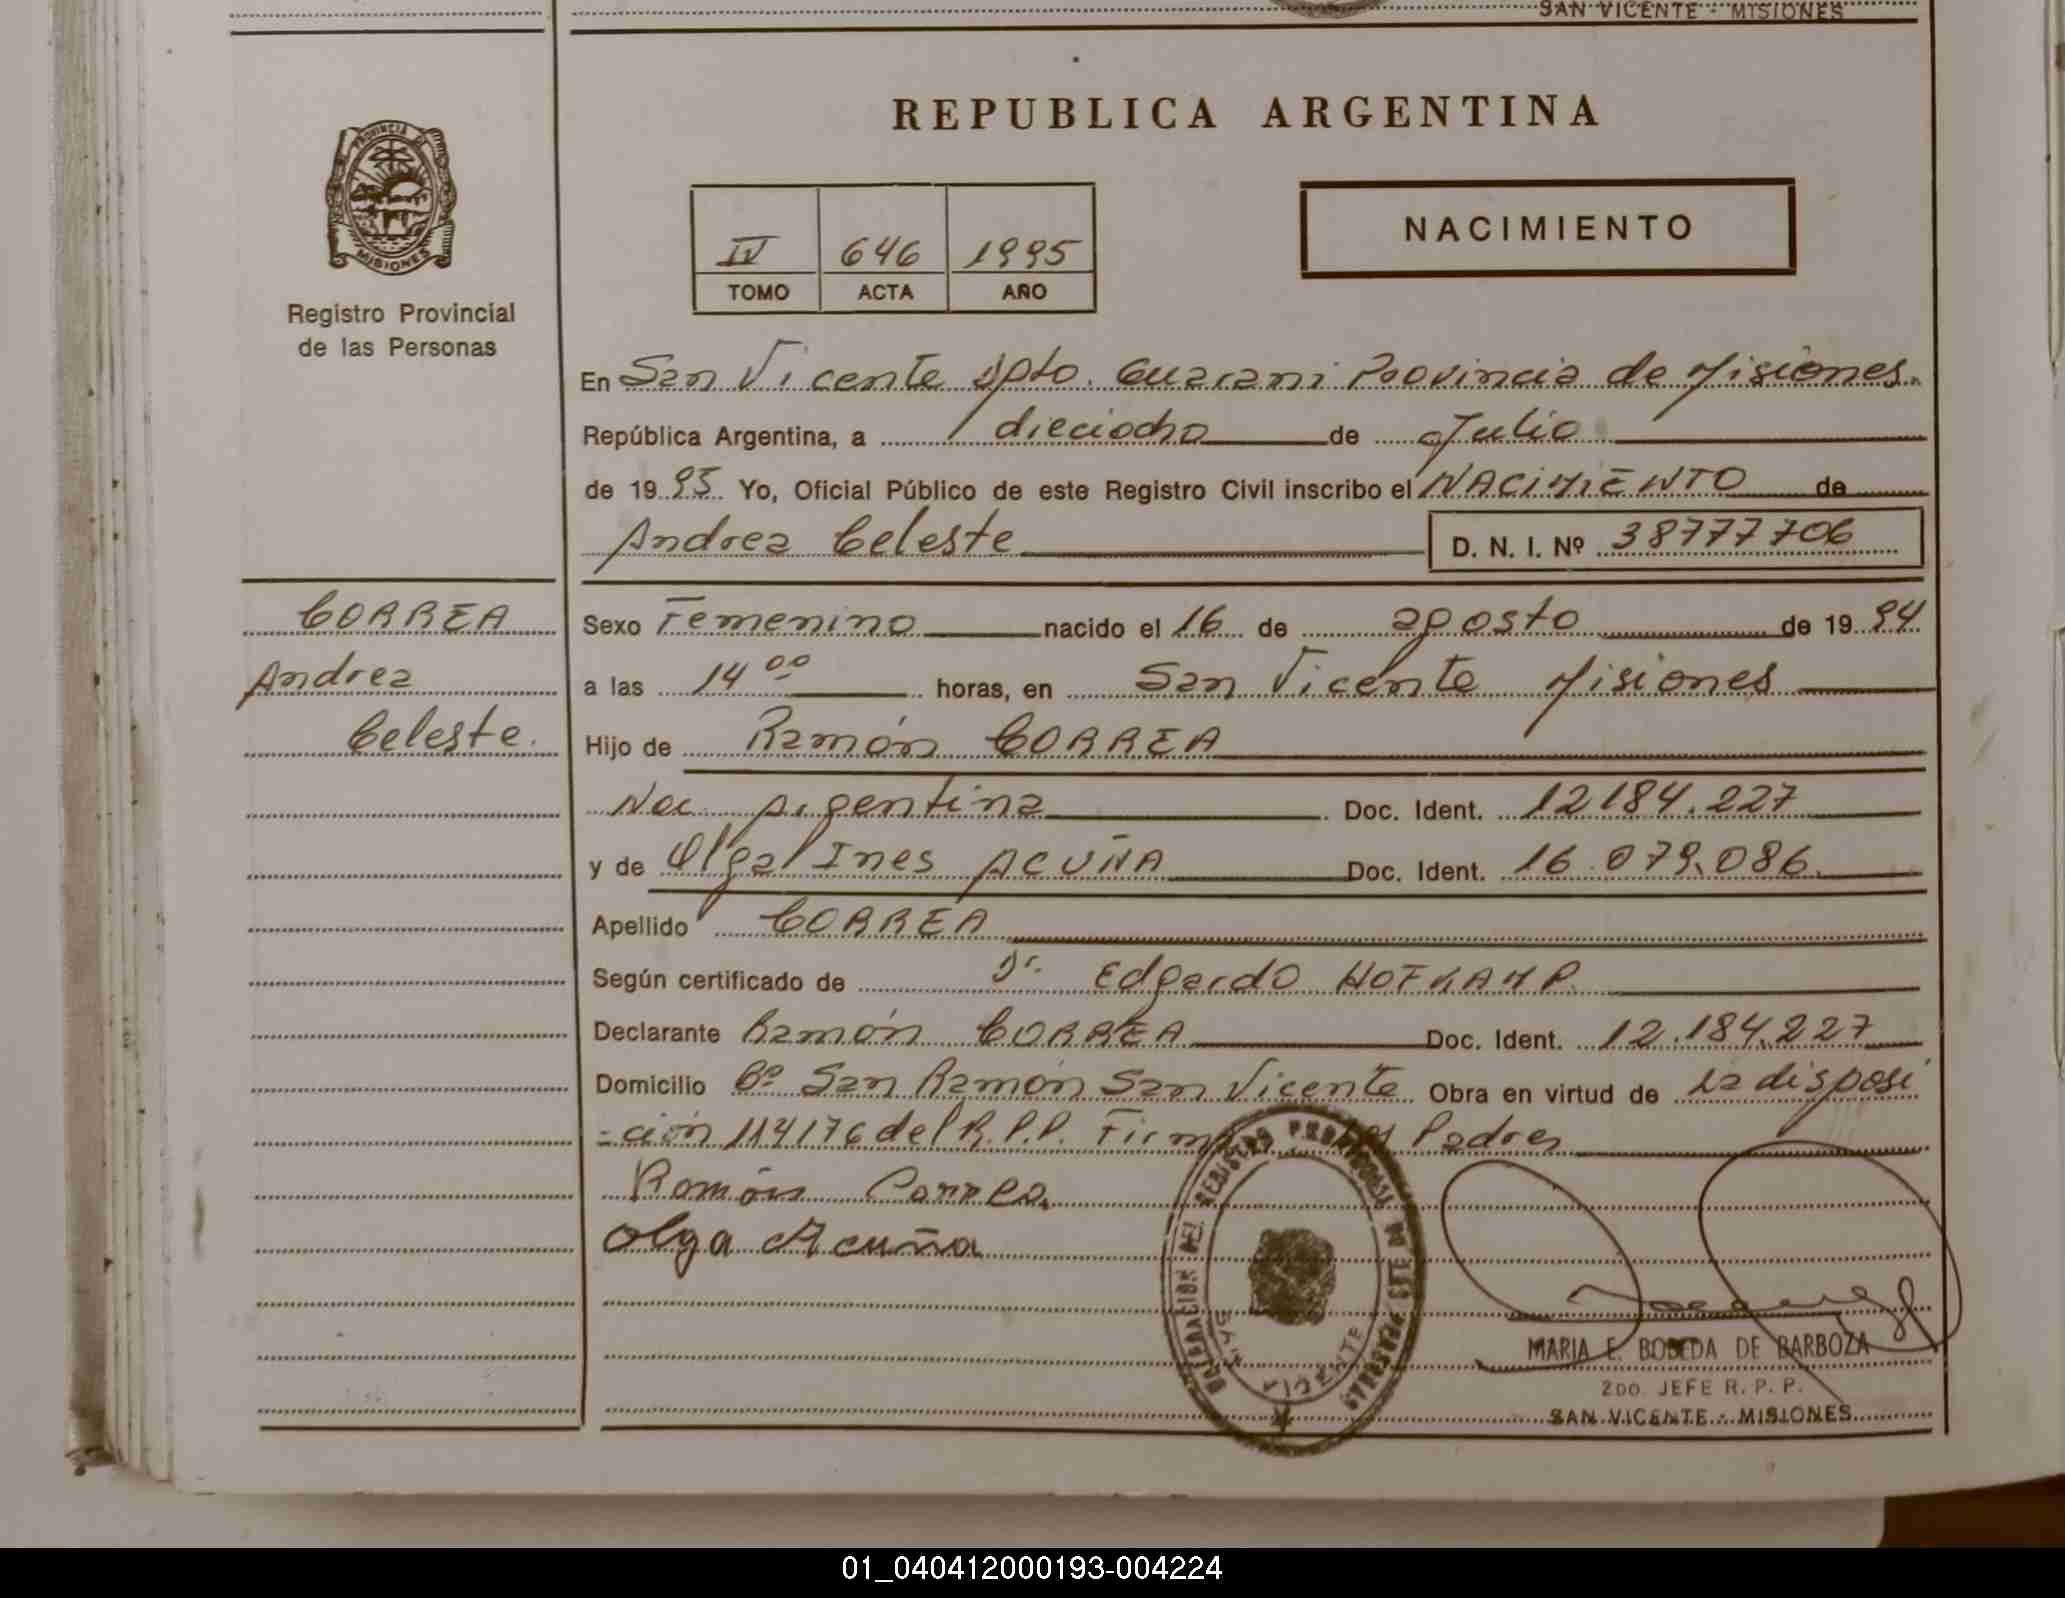 SAN VICENTE - MISIONES
REPUBLICA ARGENTINA
PROVINCIA DE
MISIONES
Registro Provincial
de las Personas
IV 646 1995
TOMO ACTA AÑO
NACIMIENTO
En San Vicente Dpto. Guarani Provincia de Misiones.
República Argentina, a dieciocho de Julio
de 1995 Yo, Oficial Público de este Registro Civil inscribo el NACIMIENTO de
Andrea Celeste D. N. I. Nº 38777706
CORREA
Andrea
Celeste.
Sexo Femenino nacido el 16 de agosto de 1994
a las 14 00 horas, en San Vicente Misiones
Hijo de Ramón CORREA
Nac. Argentina Doc. Ident. 12184.227
y de Olga Ines ACUÑA Doc. Ident. 16.079.086
Apellido CORREA
Según certificado de Dr. Edgardo HOFKAMP.
Declarante Ramón CORREA Doc. Ident. 12.184.227
Domicilio Bº San Ramón San Vicente Obra en virtud de la disposi
-ción 114176 del R.P.P. Firman los Padres
Ramón Correa.
Olga Acuña
DELEGACION DEL REGISTRO PROVINCIAL DE LAS PERSONAS
SAN VICENTE
MARIA E. BOBEDA DE BARBOZA
2DO. JEFE R. P. P.
SAN VICENTE - MISIONES
01_040412000193-004224